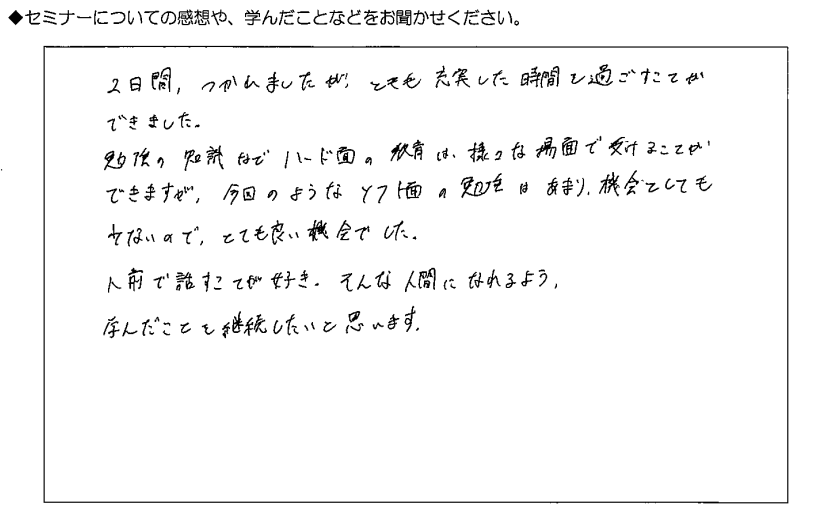 ◆セミナーについての感想や、学んだことなどをお聞かせください。
2日間、つかれましたが、とても充実した時間を過ごすことが
できました。
勉強の知識などハード面の教育は、様々な場面で受けることが
できますが、今回のようなソフト面の勉強はあまり、機会としても
少ないので、とても良い機会でした。
人前で話すことが好き。そんな人間になれるよう、
学んだことを継続したいと思います。